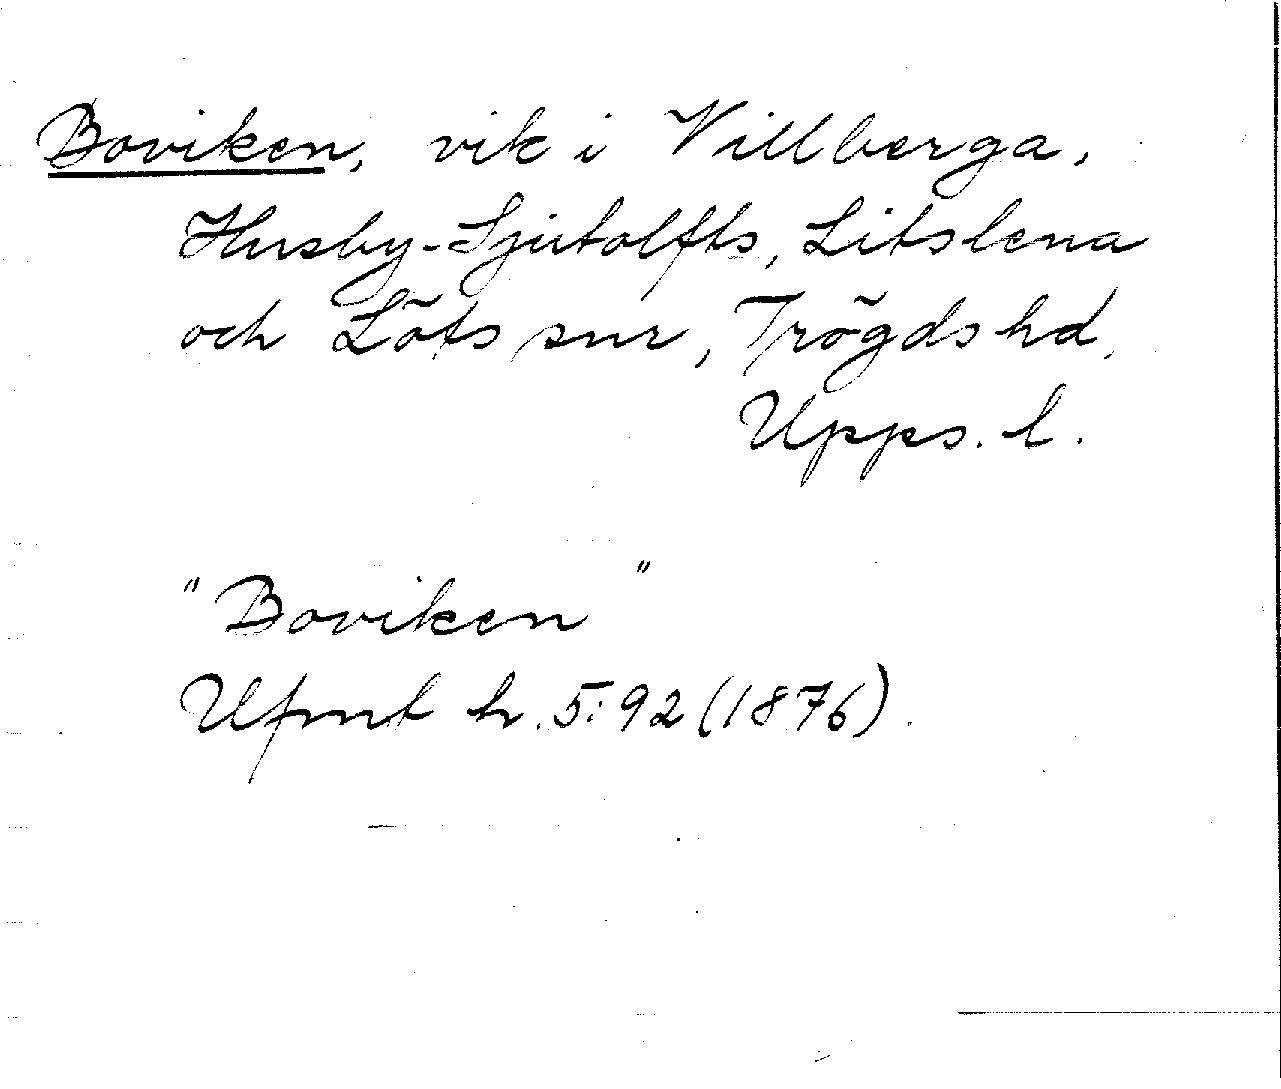 Boviken, vik i Villberga,
Husby-Sjutolfts, Litslena
och Löts snr, Trögds hd,
Upps. l.
"Boviken"
Ufmt h. 5:92 (1876).